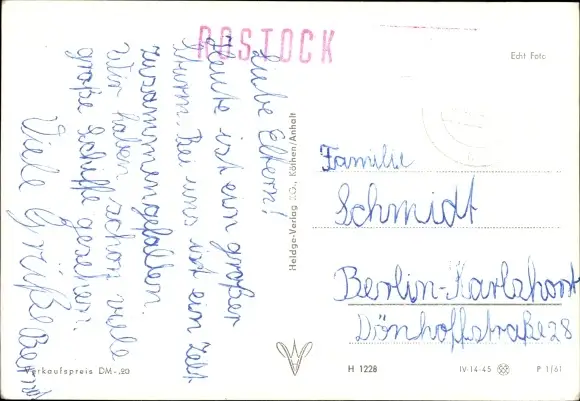 ROSTOCK
Liebe Eltern!
Heute ist ein großer
Sturm. Bei uns ist ein Zelt
zusammengefallen.
Wir haben schon viele
große Schiffe gesehen.
Viele Grüße Bernd
Verkaufspreis DM -,20
Heldge-Verlag KG., Köthen/Anhalt
Echt Foto
Familie
Schmidt
Berlin-Karlshorst
Dönhoffstraße 28
H 1228
IV-14-45
P 1/61